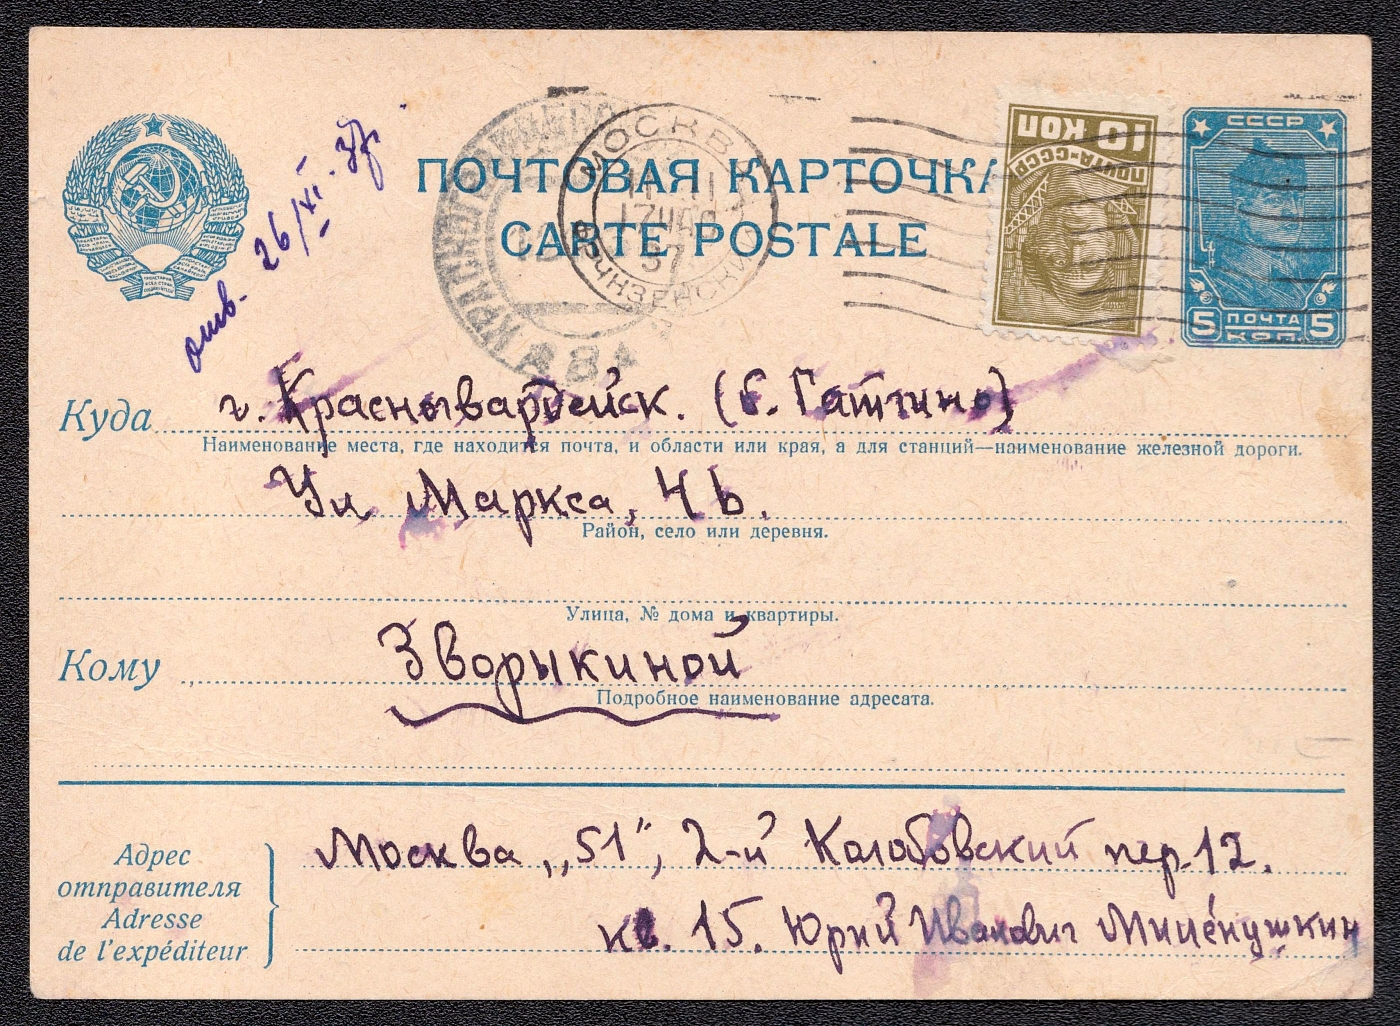 отв. 26/XI-37г.
ПОЧТОВАЯ КАРТОЧКА
CARTE POSTALE
МОСКВА
37
10 КОП
ПОЧТА-СССР
СССР
5 ПОЧТА 5
КОП.
Куда г. Красногвардейск. (б. Гатчино)
Наименование места, где находится почта, и области или края, а для станций—наименование железной дороги.
Ул Маркса, 4 b.
Район, село или деревня.
Улица, № дома и квартиры.
Кому Зворыкиной
Подробное наименование адресата.
Адрес
отправителя
Adresse
de l'expéditeur
Москва „51", 2-й Колобовский пер. 12.
кв. 15. Юрий Иванович